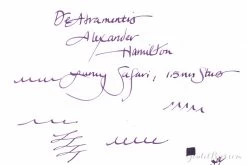 De Atramentis
Alexander
Hamilton
Lamy Safari, 1.5mm Stub